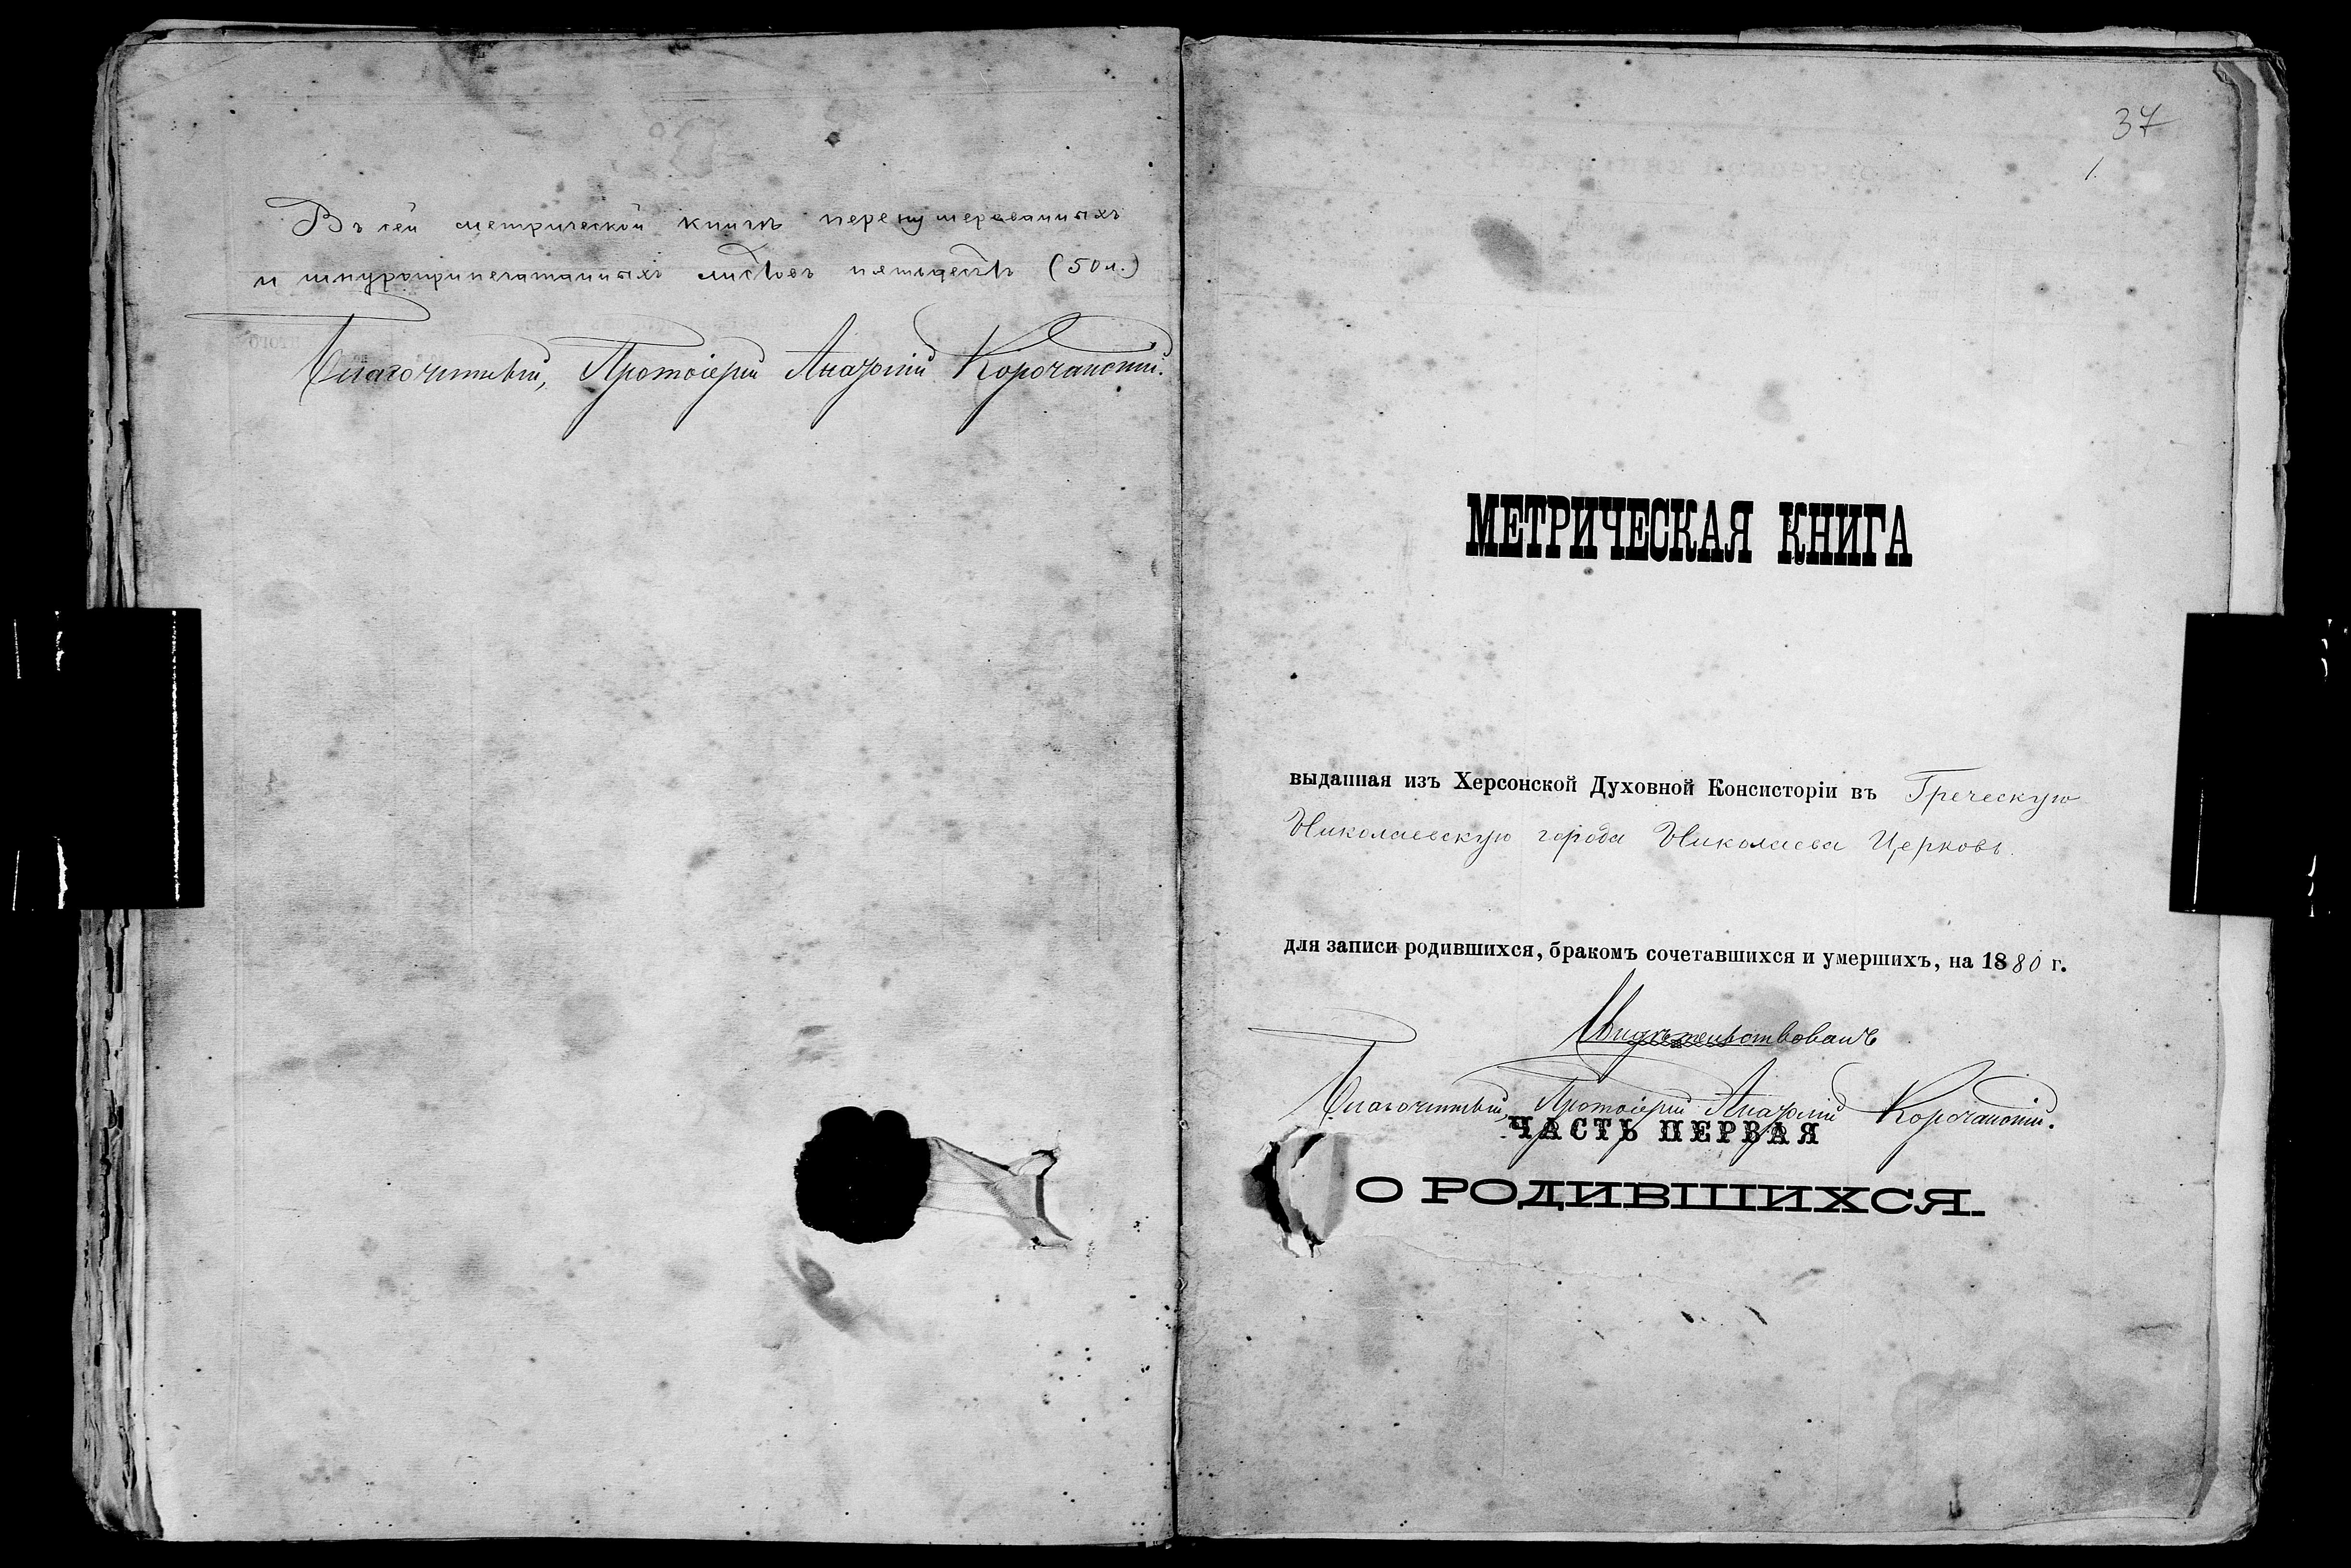 Въ сей метрической книгѣ перенумерованныхъ
и шнуроприпечатанныхъ листовъ пятьдесятъ (50 л.)
Благочинный, Протоіерей Анатолій Корочанскій.
37
1.
МЕТРИЧЕСКАЯ КНИГА
выданная изъ Херсонской Духовной Консисторіи въ Греческую
Николаевскую города Николаева Церковь.
для записи родившихся, бракомъ сочетавшихся и умершихъ, на 1880 г.
Свидѣтельствовалъ
Благочинный, Протоіерей Анатолій Корочанскій.
ЧАСТЬ ПЕРВАЯ
О РОДИВШИХСЯ.